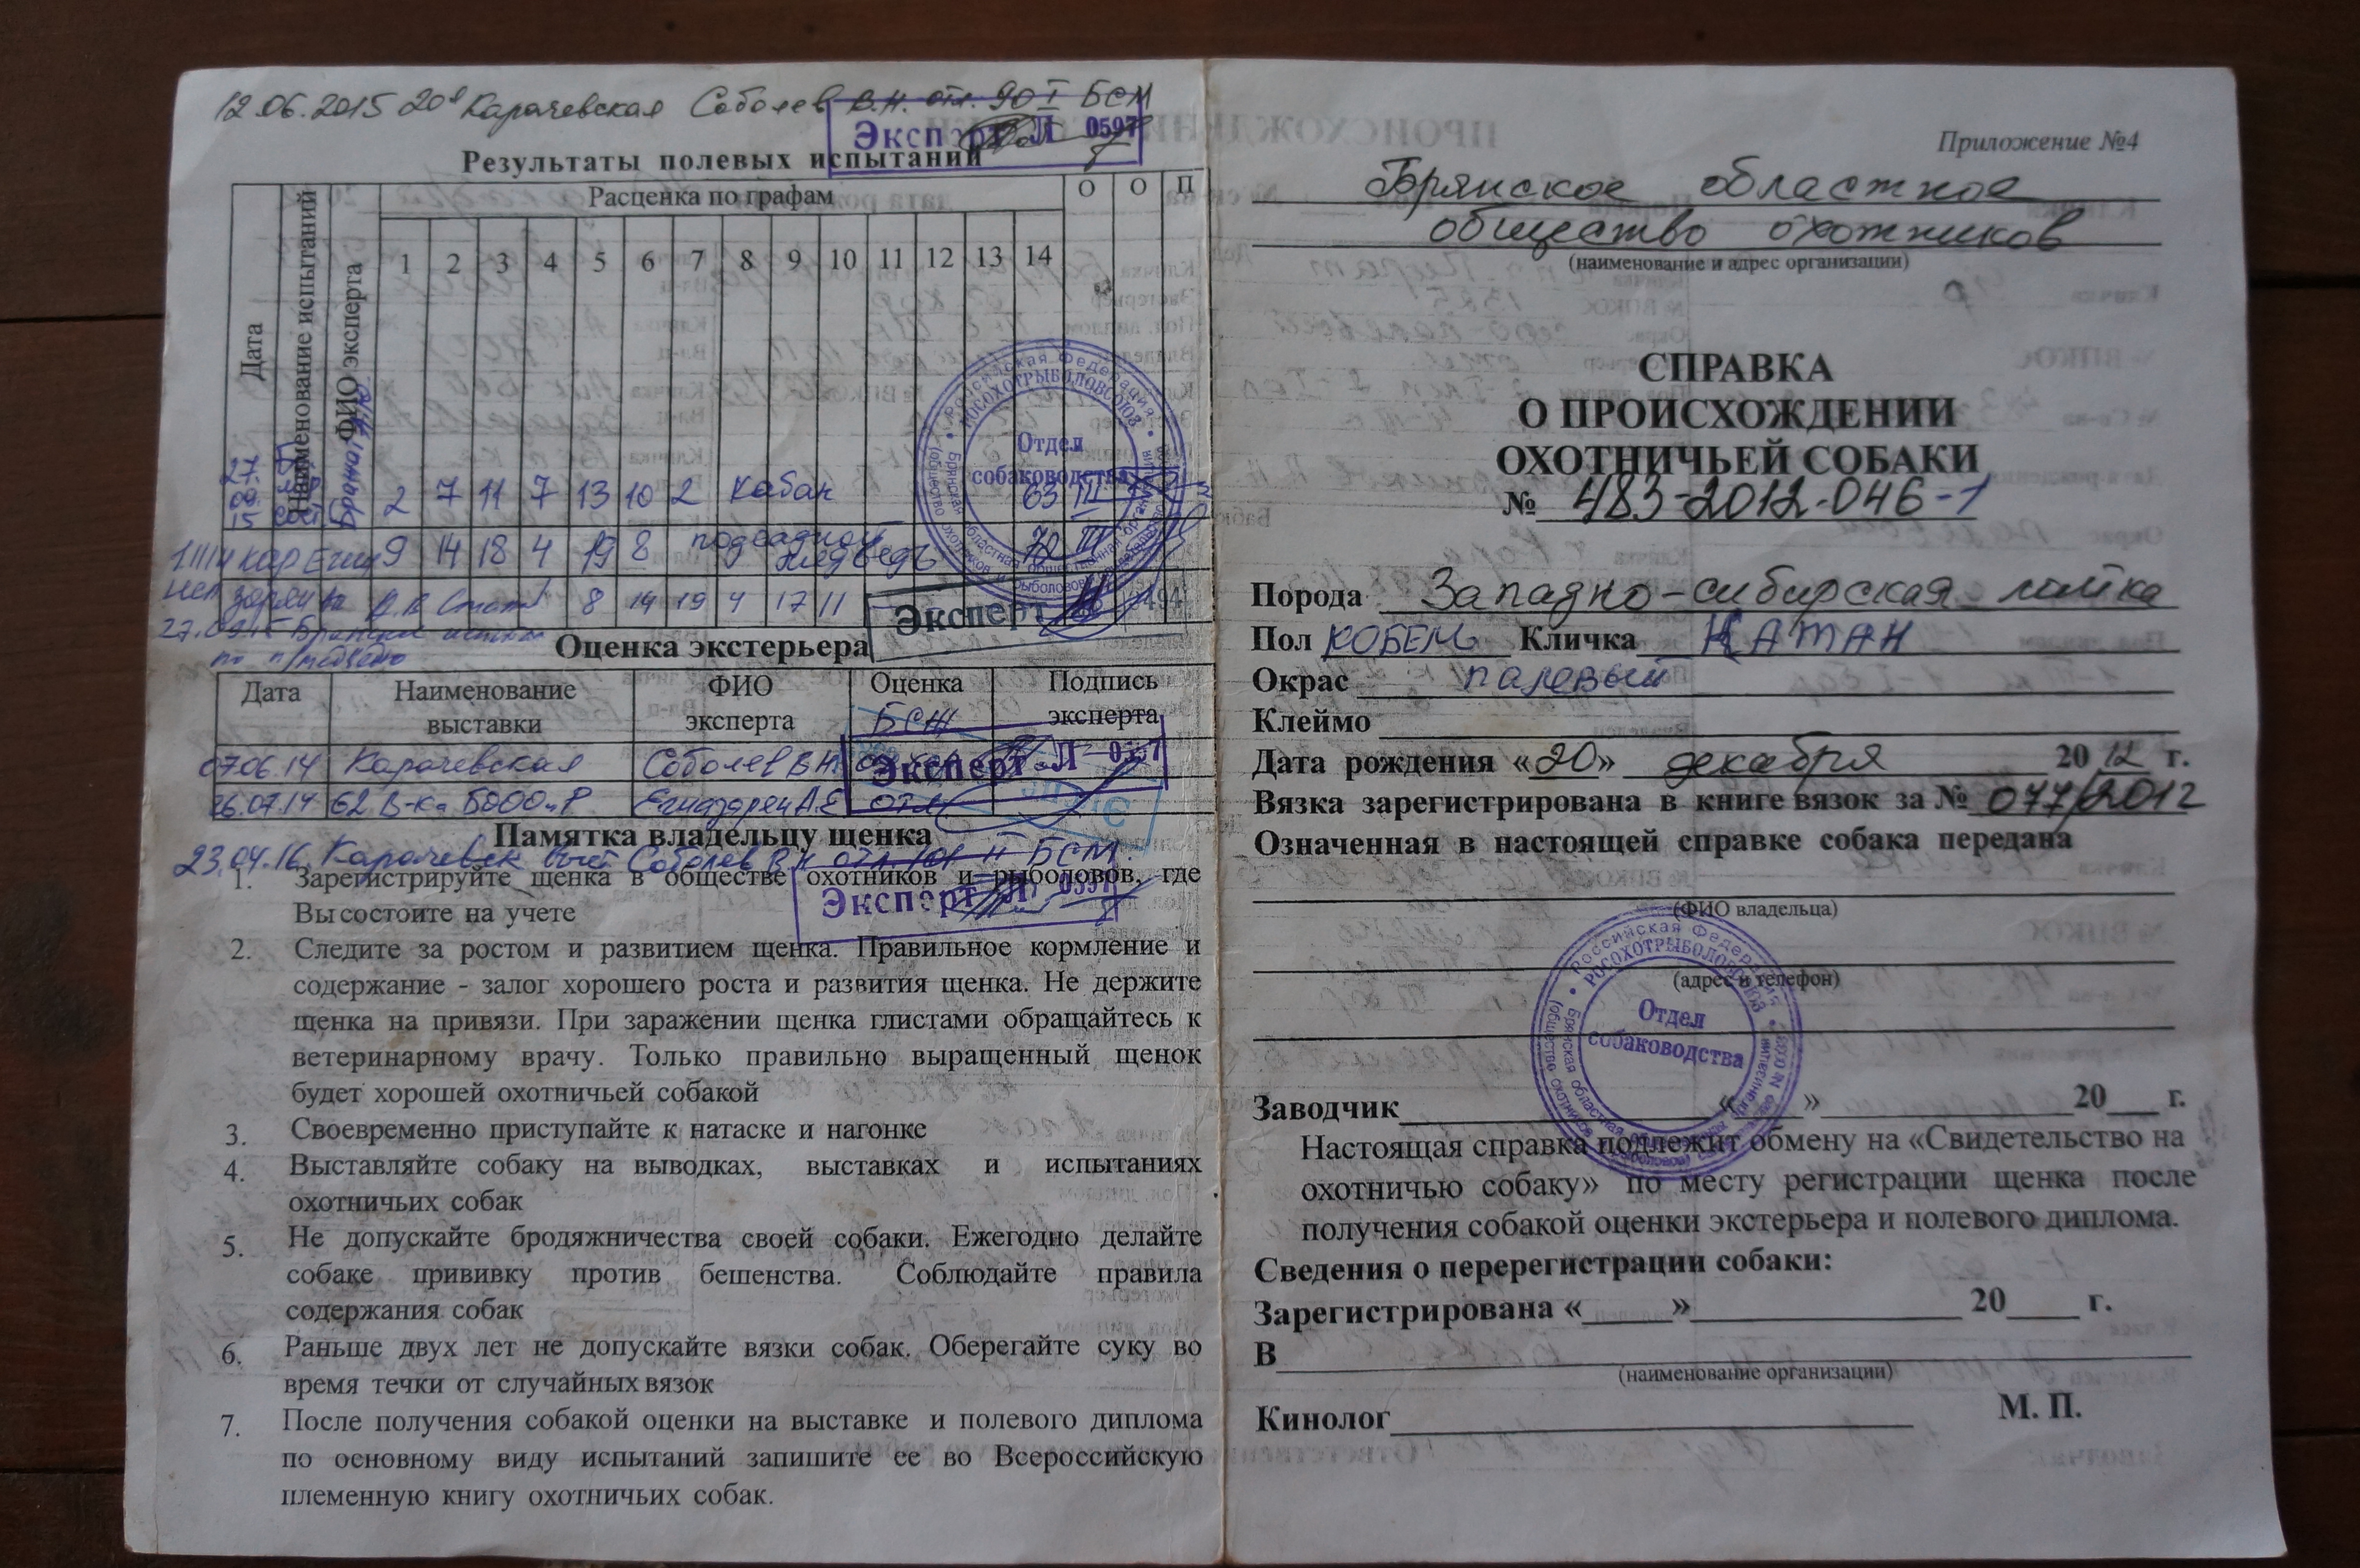 12.06.2015 20я Карачевская Соболев В.Н. отл. 90 I БСМ
Эксперт Л 0597
Результаты полевых испытаний
Дата
Наименование испытаний
ФИО эксперта
Расценка по графам
О О П
1 2 3 4 5 6 7 8 9 10 11 12 13 14
27. 09. 15 2 7 11 7 13 10 2 кабан 63 III
9 14 18 4 19 8 подсадной медведь 72 III
8 14 19 4 17 11
27.09.15
Российская Федерация
РОСОХОТРЫБОЛОВСОЮЗ
Отдел
собаководства
Эксперт
Оценка экстерьера
Дата Наименование выставки ФИО эксперта Оценка Подпись эксперта
БСМ
07.06.14 Карачевская Соболев В.Н.
Эксперт Л
26.07.14 62 В-ка БООО и Р отл
Памятка владельцу щенка
23.04.16 Соболев В.Н отл II БСМ.
Эксперт Л 0597
1. Зарегистрируйте щенка в обществе охотников и рыболовов, где
Вы состоите на учете
2. Следите за ростом и развитием щенка. Правильное кормление и
содержание - залог хорошего роста и развития щенка. Не держите
щенка на привязи. При заражении щенка глистами обращайтесь к
ветеринарному врачу. Только правильно выращенный щенок
будет хорошей охотничьей собакой
3. Своевременно приступайте к натаске и нагонке
4. Выставляйте собаку на выводках, выставках и испытаниях
охотничьих собак
5. Не допускайте бродяжничества своей собаки. Ежегодно делайте
собаке прививку против бешенства. Соблюдайте правила
содержания собак
6. Раньше двух лет не допускайте вязки собак. Оберегайте суку во
время течки от случайных вязок
7. После получения собакой оценки на выставке и полевого диплома
по основному виду испытаний запишите ее во Всероссийскую
племенную книгу охотничьих собак.
Приложение №4
Брянское областное
общество охотников
(наименование и адрес организации)
СПРАВКА
О ПРОИСХОЖДЕНИИ
ОХОТНИЧЬЕЙ СОБАКИ
№ 483-2012-046-1
Порода Западно-сибирская лайка
Пол КОБЕЛЬ Кличка КАТАН
Окрас палевый
Клеймо
Дата рождения «20» декабря 2012 г.
Вязка зарегистрирована в книге вязок за № 077/2012
Означенная в настоящей справке собака передана
(ФИО владельца)
(адрес и телефон)
Российская Федерация
РОСОХОТРЫБОЛОВСОЮЗ
Отдел
собаководства
Заводчик « » 20 г.
Настоящая справка подлежит обмену на «Свидетельство на
охотничью собаку» по месту регистрации щенка после
получения собакой оценки экстерьера и полевого диплома.
Сведения о перерегистрации собаки:
Зарегистрирована « » 20 г.
В
(наименование организации)
М. П.
Кинолог